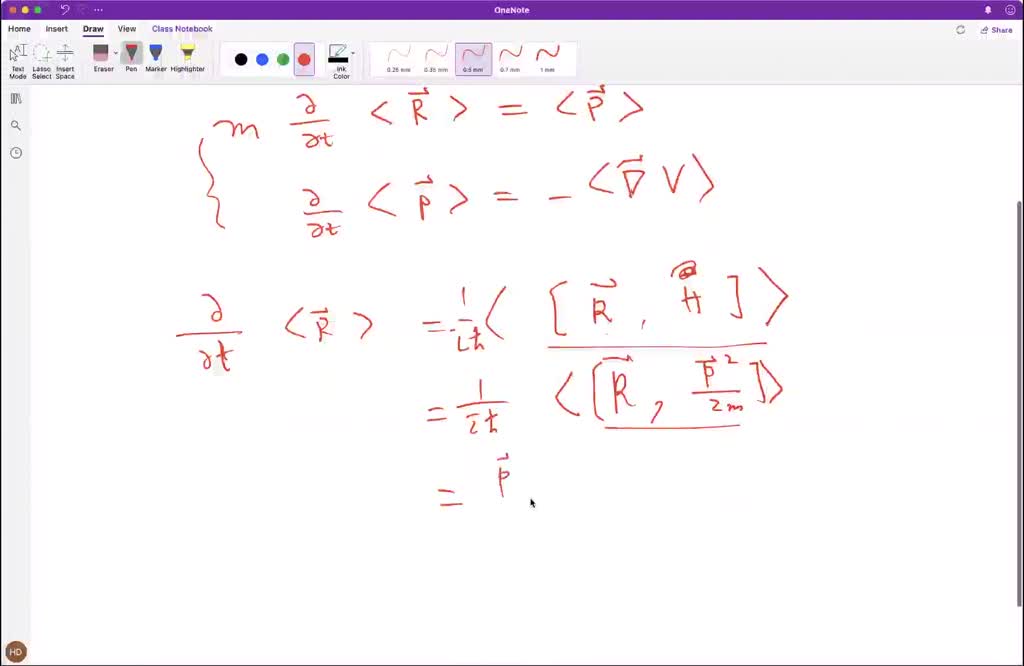 OneNote
Home Insert Draw View Class Notebook
Share
Text Mode Lasso Select Insert Space Eraser Pen Marker Highlighter Ink Color 0.25 mm 0.35 mm 0.5 mm 0.7 mm 1 mm
{ m ∂/∂t < R⃗ > = < P⃗ >
∂/∂t < P⃗ > = - < ∇⃗ V >
∂/∂t < R⃗ > = 1/iħ < [ R⃗ , H ] >
= 1/iħ < [ R⃗ , P⃗²/2m ] >
= P⃗
HD